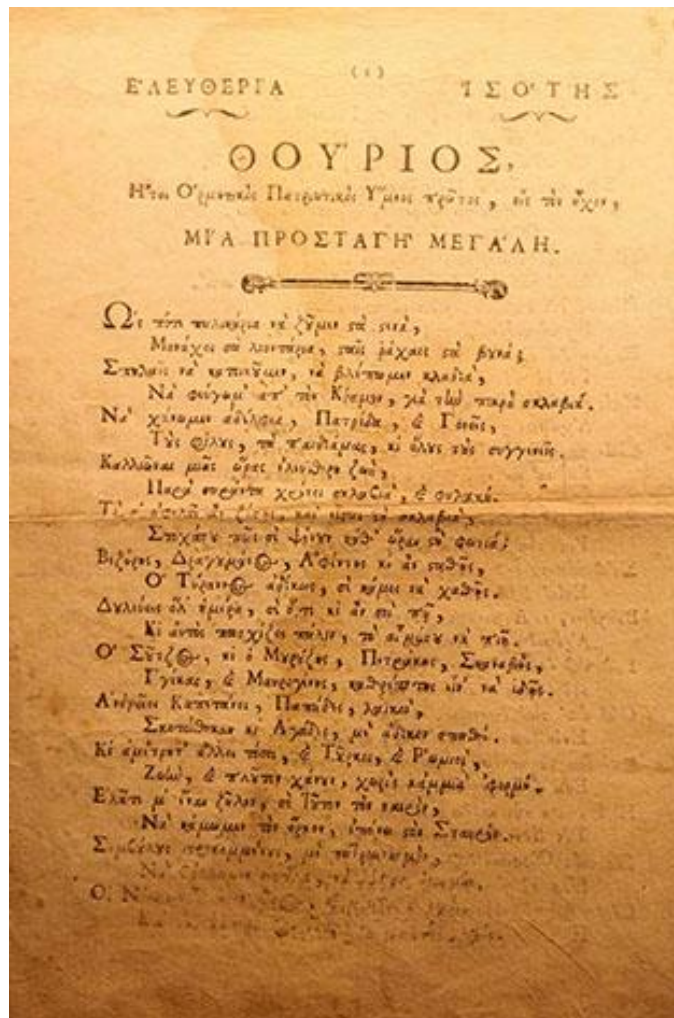 ( 1 )
ἘΛΕΥΘΕΡΙΑ ἸΣΟΤΗΣ
ΘΟΥΡΙΟΣ,
Ἤτοι Ὁρμητικὸς Πατριωτικὸς Ὕμνος πρῶτος, εἰς τὸν ἦχον,
ΜΙΑ ΠΡΟΣΤΑΓΗ ΜΕΓΑΛΗ.
Ὣς πότε παλικάρια νὰ ζῶμεν στὰ στενά,
Μονάχοι σὰ λιοντάρια, σταῖς ράχαις στὰ βουνά;
Σπηλαὶς νὰ κατοικοῦμεν, νὰ βλέπωμεν κλαδιὰ,
Νὰ φεύγωμ' ἀπ' τὸν Κόσμον, γιὰ τὴν πικρὴ σκλαβιά.
Νὰ χάνωμεν ἀδέλφια, Πατρίδα, & Γονεῖς,
Τοὺς φίλους, τὰ παιδιάμας, κι ὅλους τοὺς συγγενεῖς.
Καλλιῶναι μιᾶς ὥρας ἐλεύθερη ζωὴ,
Παρὰ σαράντα χρόνοι σκλαβιὰ, & φυλακή.
Τί σ' ὠφελεῖ ἂν ζήσῃς, καὶ εἶσαι στὴ σκλαβιὰ,
Στοχάσου πῶς σὲ ψένουν καθ' ὥραν στὴ φωτιά;
Βεζύρης, Δραγουμάνος, Ἀφέντης κι ἂν σταθῇς,
Ὁ Τύραννος ἀδίκως, σὲ κάμει νὰ χαθῇς.
Δουλεύεις ὅλ' ἡμέρα, σὲ ὅ,τι κι ἂν σοὶ πῇ,
Κι αὐτὸς πασχίζει πάλιν, τὸ αἷμα σου νὰ πιῇ.
Ὁ Σοῦτζος, κι ὁ Μουρούζης, Πετράκης, Σκαναβῆς,
Γγίκας, & Μαυρογένης, καθρέπτης εἶν' νὰ ἰδῇς.
Ἀνδρεῖοι Καπετάνοι, Παπάδες, λαϊκοὶ,
Σκοτώθηκαν κι Ἀγάδες, μὲ ἄδικον σπαθί.
Κι ἀμέτρητ' ἄλλοι τόσοι, & Τοῦρκοι, & Ῥωμιοὶ,
Ζωὴν, & πλοῦτον χάνουν, χωρὶς κάμμιὰ ἀφορμή.
Ἐλᾶτε μ' ἕναν ζῆλον, σὲ τοῦτον τὸν καιρὸν,
Νὰ κάμωμεν τὸν ὅρκον, ἐπάνω στὸν Σταυρόν.
Συμβούλους προκομμένους, μὲ πατριωτισμὸν,